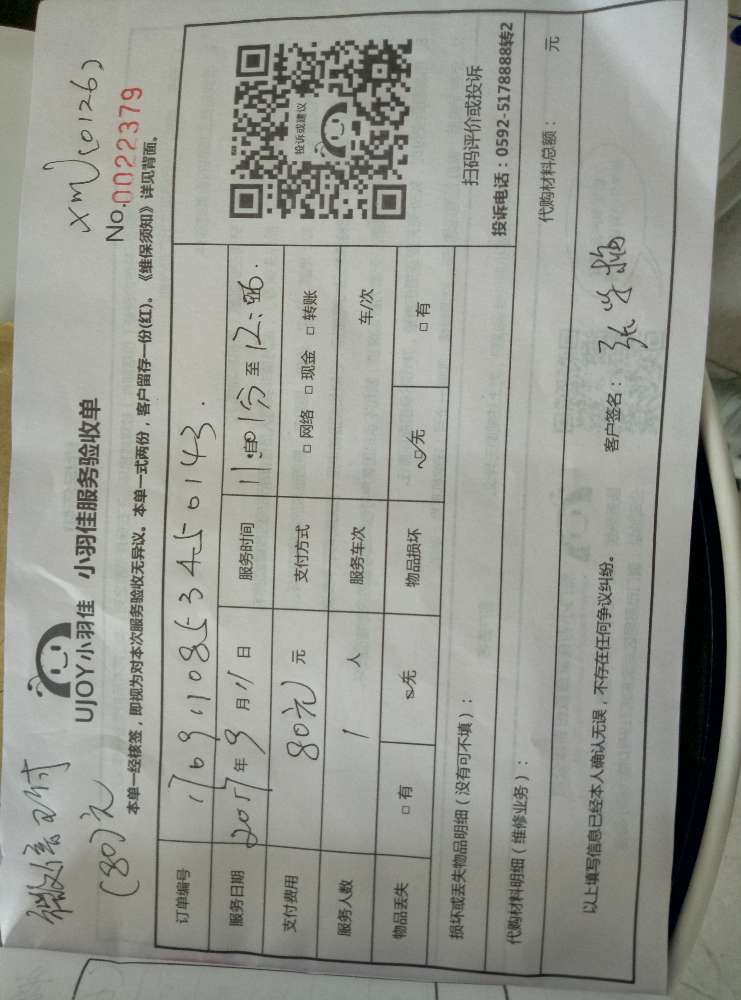 微信支付
(80)元
xmJ(0126)
UJOY小羽佳 小羽佳服务验收单
No.0022379
本单一经核签，即视为对本次服务验收无异议。本单一式两份，客户留存一份(红)。《维保须知》详见背面。
订单编号 170911085345 0143.
服务日期 2017年9月11日 服务时间 11:01分 至 12:06.
支付费用 80元 元 支付方式 □ 网络 □ 现金 □ 转账
服务人数 1 人 服务车次 车/次
物品丢失 □ 有 无 物品损坏 无 □ 有
投诉或建议
扫码评价或投诉
投诉电话：0592-5178888转2
损坏或丢失物品明细（没有可不填）：
代购材料明细（维修业务）： 代购材料总额： 元
以上填写信息已经本人确认无误，不存在任何争议纠纷。 客户签名：张